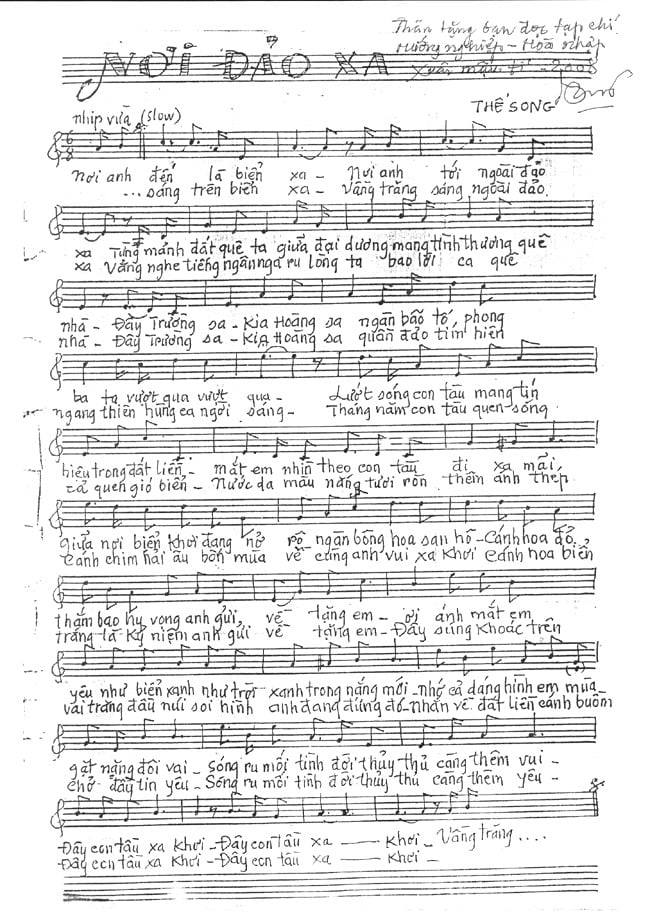 Thân tặng bạn đọc tạp chí
Hướng nghiệp - Hòa nhập
Xuân mậu tí - 2008
NƠI ĐẢO XA
THẾ SONG
nhịp vừa (slow)
6
8
Nơi anh đến là biển xa - Nơi anh tới ngoài đảo
...sáng trên biển xa - Vầng trăng sáng ngoài đảo.
xa Từng mảnh đất quê ta giữa đại dương mang tình thương quê
xa Vẳng nghe tiếng ngân nga ru lòng ta bao lời ca quê
nhà - Đây Trường Sa - Kìa Hoàng Sa ngàn bão tố, phong
nhà - Đây Trường Sa - Kìa Hoàng Sa quần đảo tìm hiên
ba ta vượt qua vượt qua - Lướt sóng con tàu mang tín
ngang thiên hùng ca ngời sáng - Tháng năm con tàu quen sóng
hiệu trong đất liền - mắt em nhìn theo con tàu đi xa mãi,
cả quen gió biển - Nước da màu nắng tươi ròn thêm ánh thép
Giữa nơi biển khơi đang nở rộ ngàn bông hoa san hô - Cánh hoa đỏ
Cánh chim hải âu bốn mùa về cùng anh vui xa khơi cánh hoa biển
thắm bao hy vọng anh gửi về tặng em - ơi ánh mắt em
trắng là kỷ niệm anh gửi về tặng em - Đây súng khoác trên
yêu như biển xanh như trời xanh trong nắng mới - nhớ cả dáng hình em mùa -
vai trăng đầu núi soi hình anh đang đứng đó - nhắn về đất liền cánh buồm
gặt nặng đôi vai - Sóng ru mối tình đời thủy thủ càng thêm vui -
chở đầy tin yêu - Sóng ru mối tình đời thủy thủ càng thêm yêu -
Đây con tàu xa khơi - Đây con tàu xa — khơi - Vầng trăng....
Đây con tàu xa khơi - Đây con tàu xa — khơi -